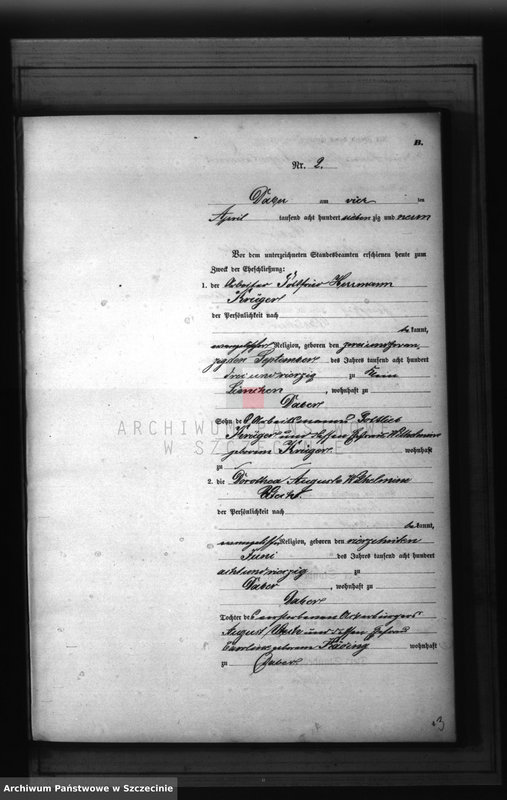 B.
Nr. 2.
Daber am vier ten
April tausend acht hundert sieben zig und neun
Vor dem unterzeichneten Standesbeamten erschienen heute zum
Zweck der Eheschließung:
1. der Arbeiter Gottfried Herrmann
Krüger
der Persönlichkeit nach
be kannt,
evangelischer Religion, geboren den zweiundzwan
zigsten September des Jahres tausend acht hundert
drei und vierzig zu Klein
Benchen, wohnhaft zu
Daber
Sohn des Arbeitsmanns Gottlieb
Krüger und dessen Ehefrau Wilhelmine
geborene Krüger wohnhaft
zu
2. die Dorothea Auguste Wilhelmine
der Persönlichkeit nach
be kannt,
evangelischer Religion, geboren den vierzehnten
Juni des Jahres tausend acht hundert
acht und vierzig zu
Daber, wohnhaft zu
Daber
Tochter des verstorbenen Ackerbürgers
August und dessen Ehefrau
Caroline geborene wohnhaft
zu Daber
3
ARCHIWUM PAŃSTWOWE
W SZCZECINIE
Archiwum Państwowe w Szczecinie